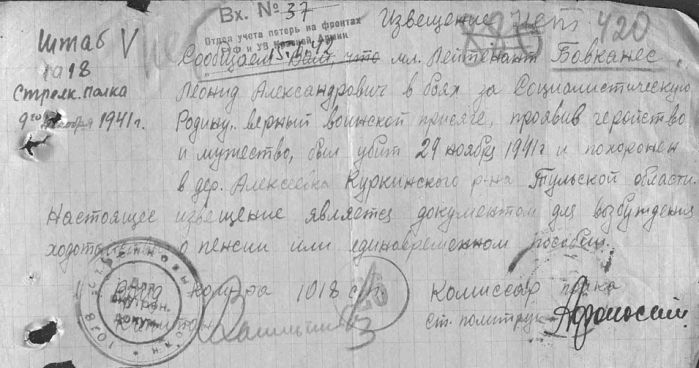 Вх. № 37
Отдел учета потерь на фронтах
ГУФ и УВ Красной Армии
Извещение
нет
420
Штаб
1018
Стрелк. полка
9го декабря 1941 г.
Сообщаем Вам, что мл. Лейтенант Бовканес
Леонид Александрович в боях за Социалистическую
Родину, верный воинской присяге, проявив геройство
и мужество, был убит 29 ноября 1941 г и похоронен
в дер. Алексеевка Куркинского р-на Тульской области.
Настоящее извещение является документом для возбуждения
о пенсии или единовременном пособии.
ком-ра 1018 с/п
Комиссар полка
Капитан
ст. политрук